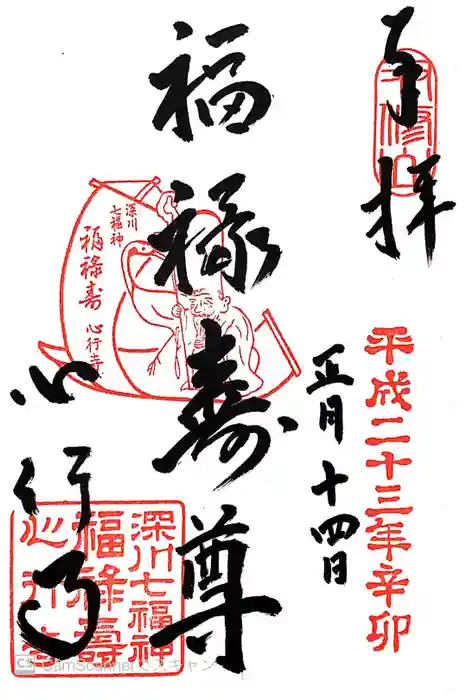 奉拝
平成二十三年辛卯
正月十四日
福禄寿尊
深川
七福神
福禄寿
心行寺
心行寺
深川七福神
福禄壽
心行寺
CS CamScannerでスキャン